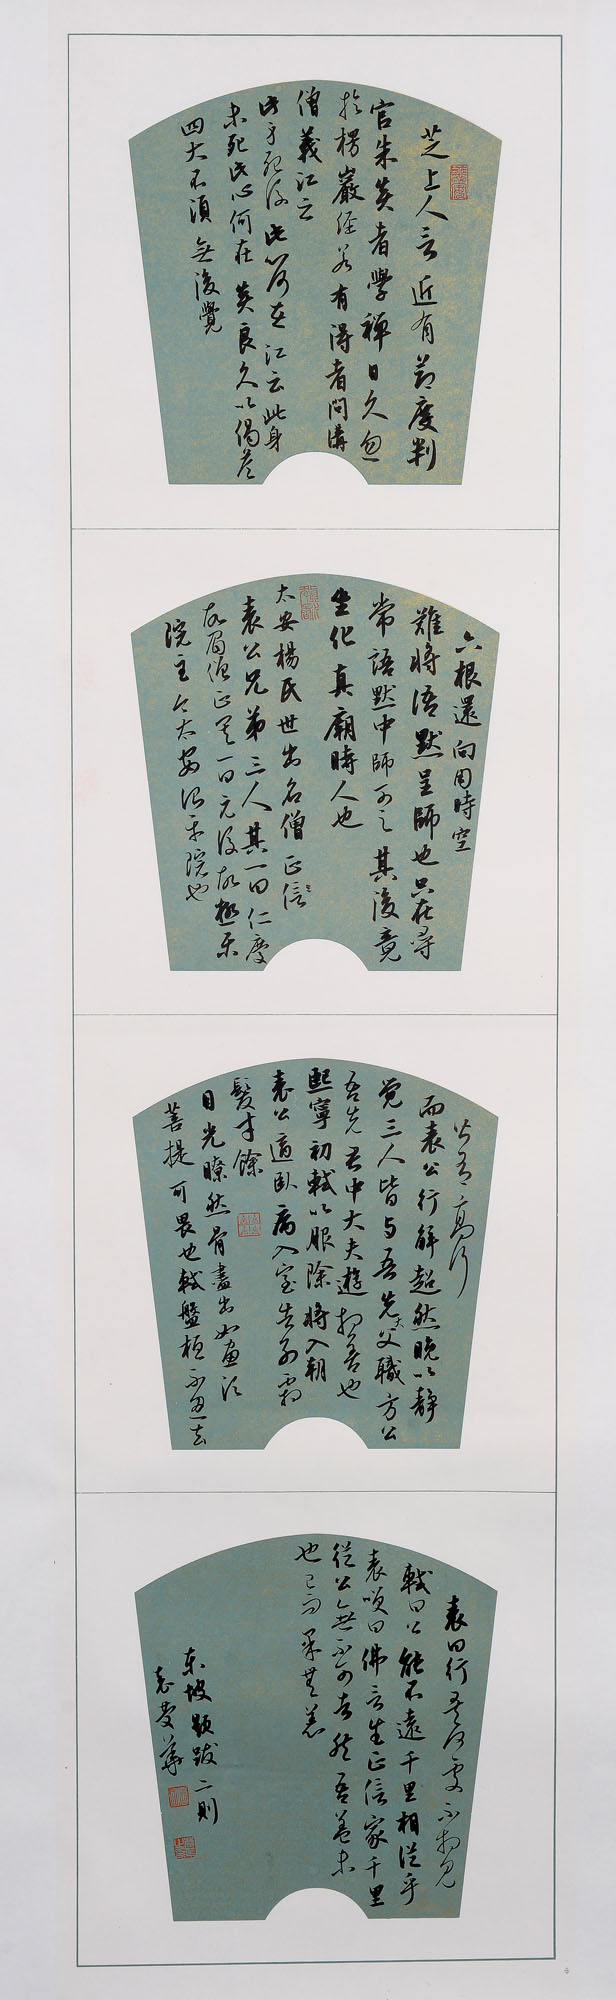 芝上人言近有節度判
官朱炎者學禪日久忽
於楞嚴經若有得者問講
僧義江云
此身死後此心何在江云此身
未死此心何在炎良久以偈答
四大不須先後覺
六根還向用時空
難將語默呈師也只在尋
常語默中師可之其後竟
坐化真廟時人也
太安楊氏世出名僧正信
表公兄弟三人其一曰仁慶
故眉僧正其一曰元俊故極樂
院主今太安治平院也
皆有高行
而表公行解超然晚以靜
覺三人皆與吾先大父職方公
吾先君中大夫遊相善也
熙寧初軾以服除將入朝
表公適臥病入室告別霜
髮寸餘
目光瞭然骨盡出如畫須
菩提可畏也軾盤桓不忍去
表曰行矣何處不相見
軾曰公能不遠千里相從乎
表笑曰佛言生正信家千里
從公無不可者然吾蓋未
也已而果無恙
東坡題跋二則